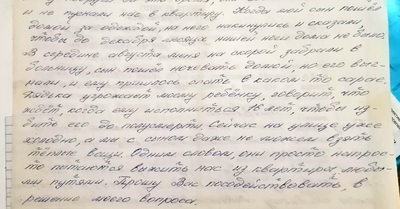 и не пускали нас в квартиру. Когда мой сын пошел
домой за одеждой, на него накинулись и сказали,
чтобы до декабря месяца нашей ноги дома не было.
В середине августа меня на скорой забрали в
больницу, сын пошел ночевать домой, но его выг-
нали, и ему пришлось спать в каком-то сарае.
Дядька угрожает моему ребёнку, говорит, что
ждёт, когда ему исполниться 18 лет, чтобы из-
бить его до полусмерти. Сейчас на улице уже
холодно, а мы с сыном даже не можем взять
тёплые вещи. Одним словом, они просто нагрос-
то пытаются выжить нас из квартиры любы-
ми путями. Прошу Вас посодействовать, в
решение моего вопроса.